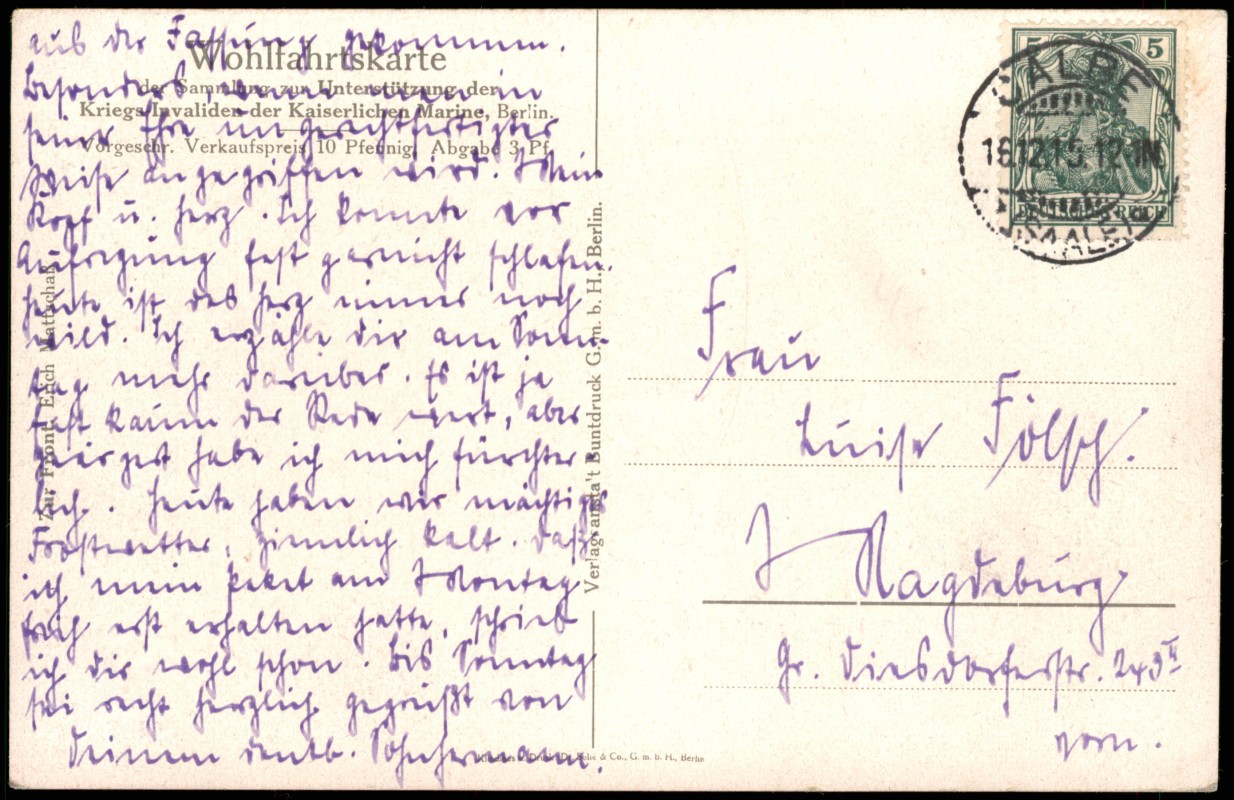 aus der Fassung gekommen.
Besonders, wenn man in
seiner Ehre ungerechtfertigter
Weise angegriffen wird. Mein
Kopf u. Herz. Ich konnte vor
Aufregung fast garnicht schlafen.
Heute ist das Herz immer noch
wild. Ich erzähle dir am Sonn-
tag mehr darüber. Es ist ja
fast kaum der Rede wert, aber
habe ich mich fürchter
lich. Heute haben wir mächtiges
Frostwetter, ziemlich kalt. Daß
ich mein Paket am Montag
früh erst erhalten hatte, schrieb
ich dir wohl schon. Bis Sonntag
sei recht herzlich gegrüßt von
Deinem dankb. Sohn Hermann.
Wohlfahrtskarte
der Sammlung zur Unterstützung der
Kriegs-Invaliden der Kaiserlichen Marine, Berlin.
Vorgeschr. Verkaufspreis 10 Pfennig, Abgabe 3 Pf.
Zur Front. Erich Mattschaß
Verlagsanstalt Buntdruck G. m. b. H., Berlin.
& Co., G. m. b. H., Berlin
5 5
DEUTSCHES REICH
CALBE
16.12.15. 12-1N.
(SAALE)
Frau
Luise Fölsch.
Magdeburg
Gr. Diesdorferstr. 243 II
vorn.